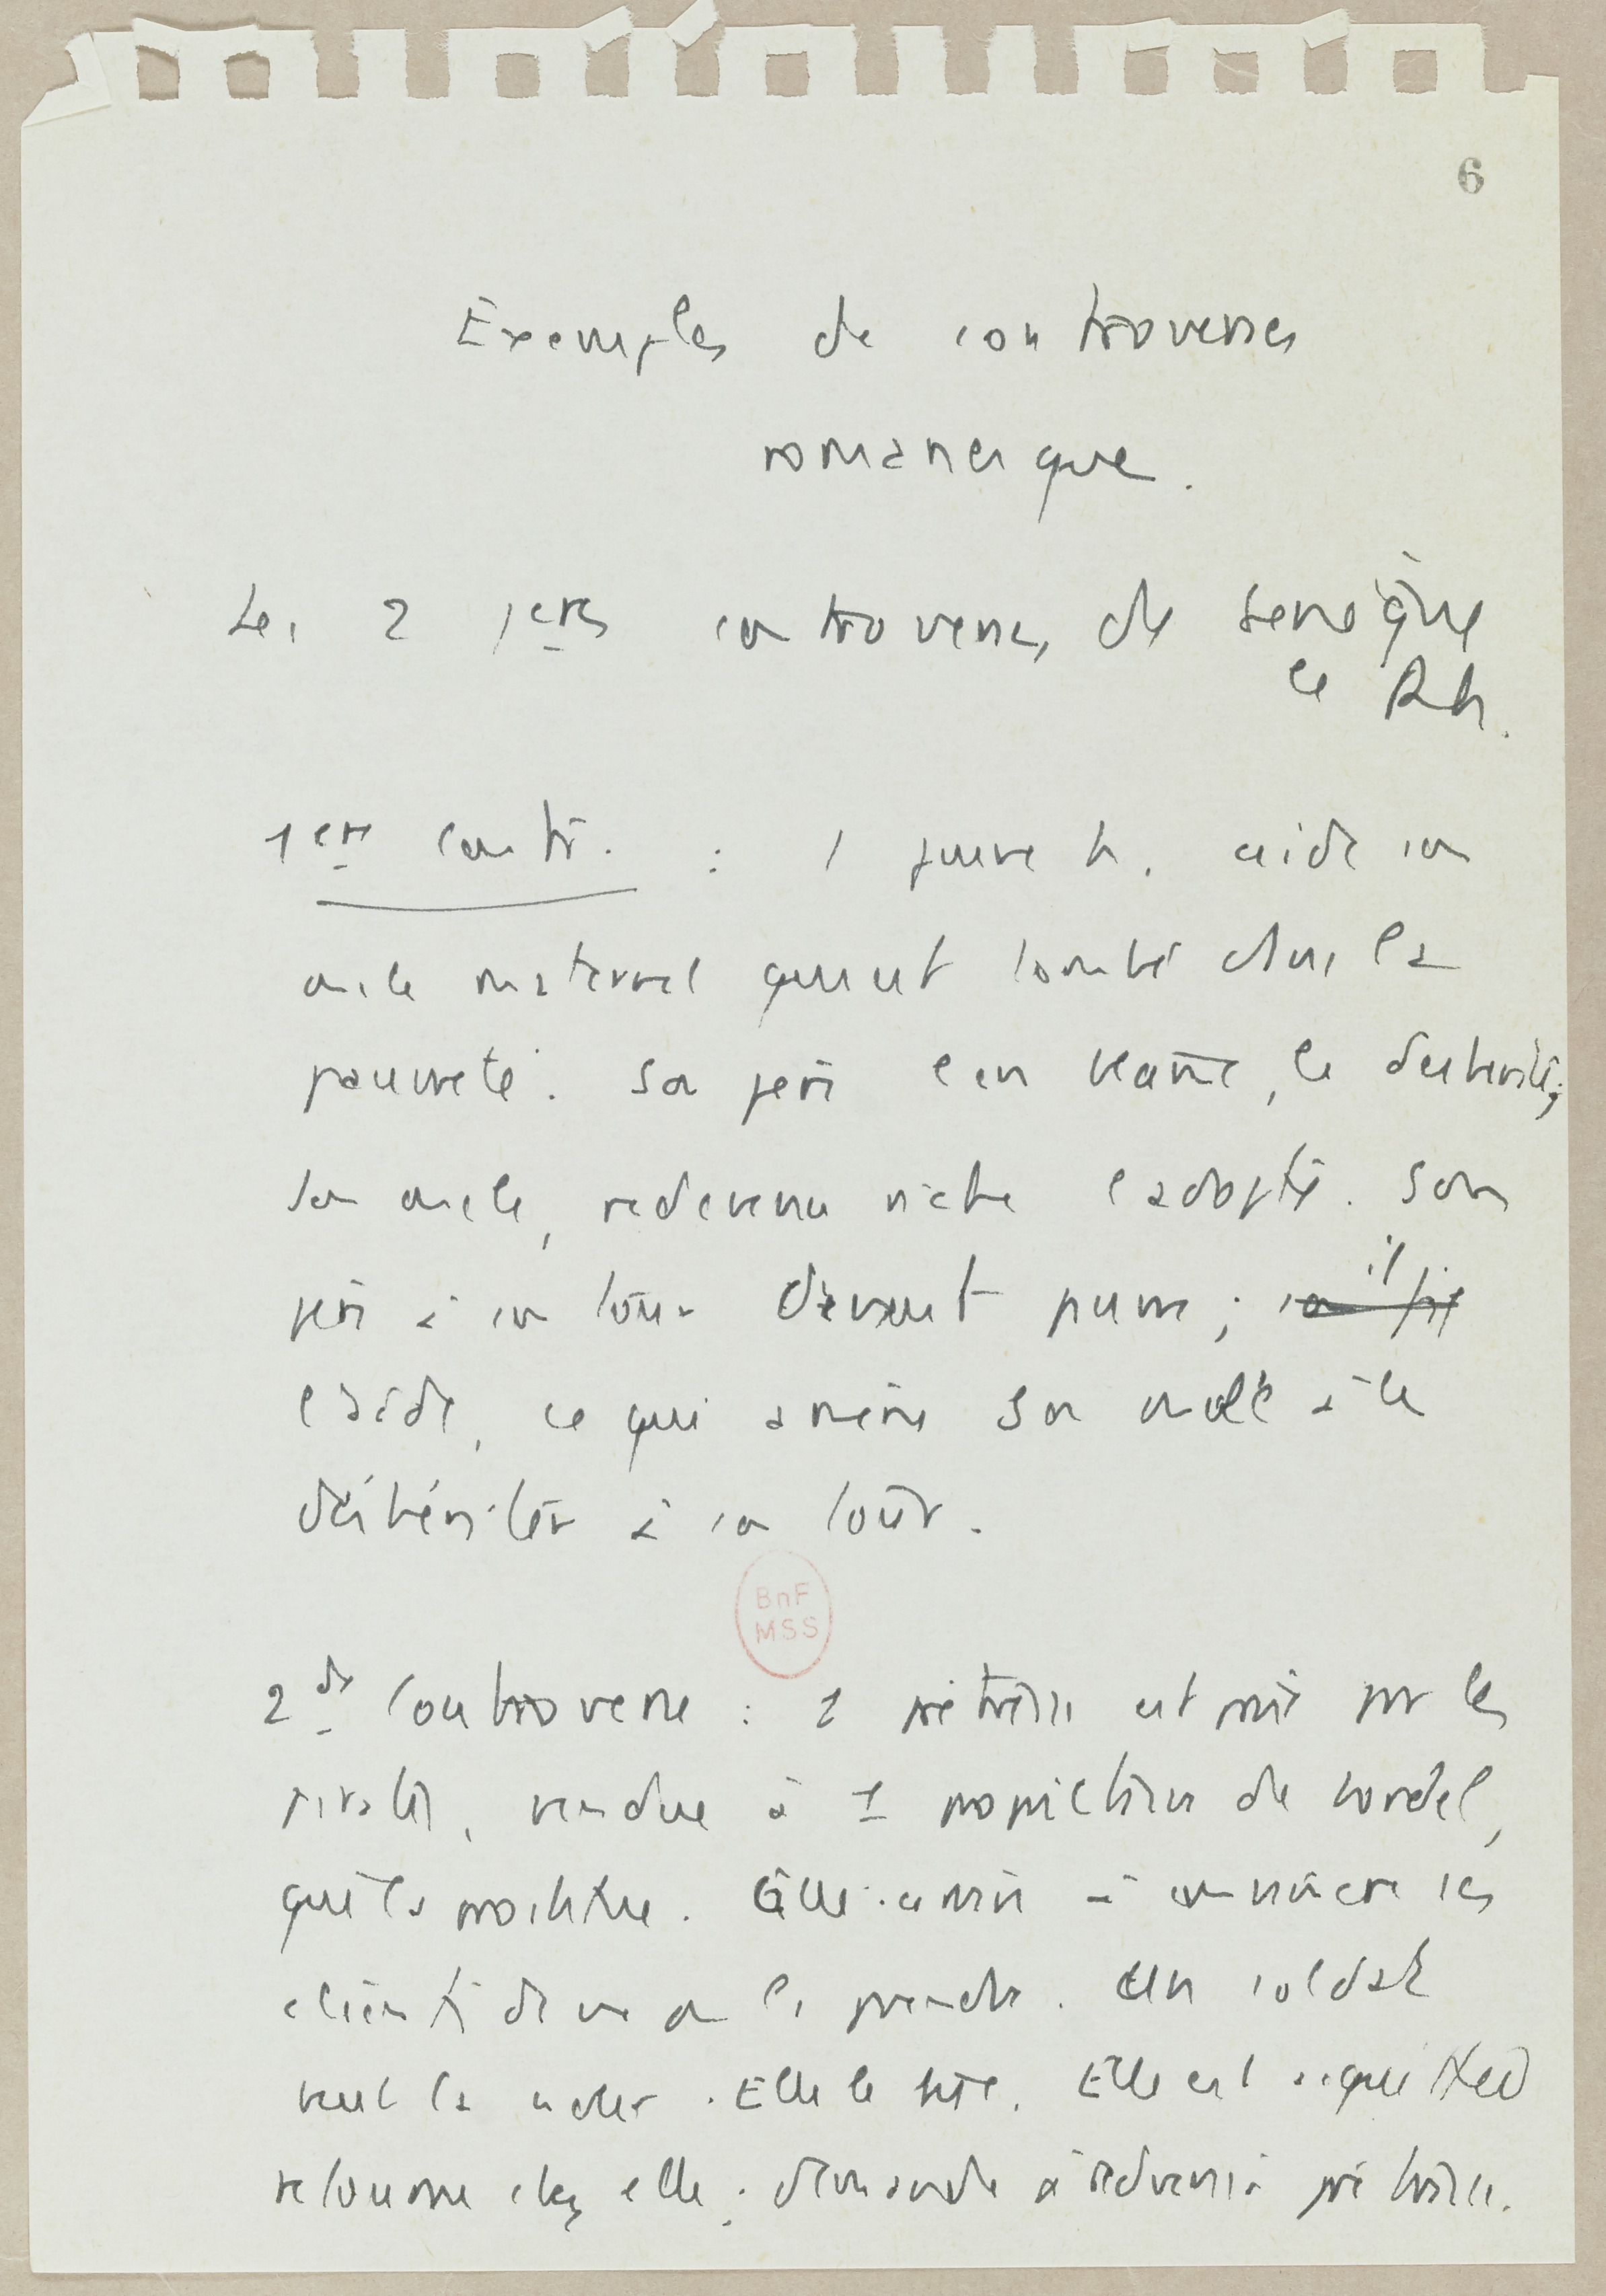 6
Exemples de controverses
romanesque.
Les 2 1eres controverses de Senèque
le Rh.
1ere contr. : 1 jeune h. aide son
oncle maternel qui est tombé dans la
pauvreté. Son père l'en blâme, le deshérite;
son oncle, redevenu riche l'adopte. Son
père à son tour devient pauvre; son fils il
l'aide, ce qui amène son oncle à le
déshériter à son tour.
BnF
MSS
2de Controverse : 1 prêtresse est prise par les
pirates, vendue à 1 propriétaire de bordel,
qui la prostitue. Elle arrive à convaincre ses
clients de ne pas la prendre. Un soldat
veut la violer. Elle le tue. Elle est acquittée
retourne chez elle; demande à redevenir prêtresse.